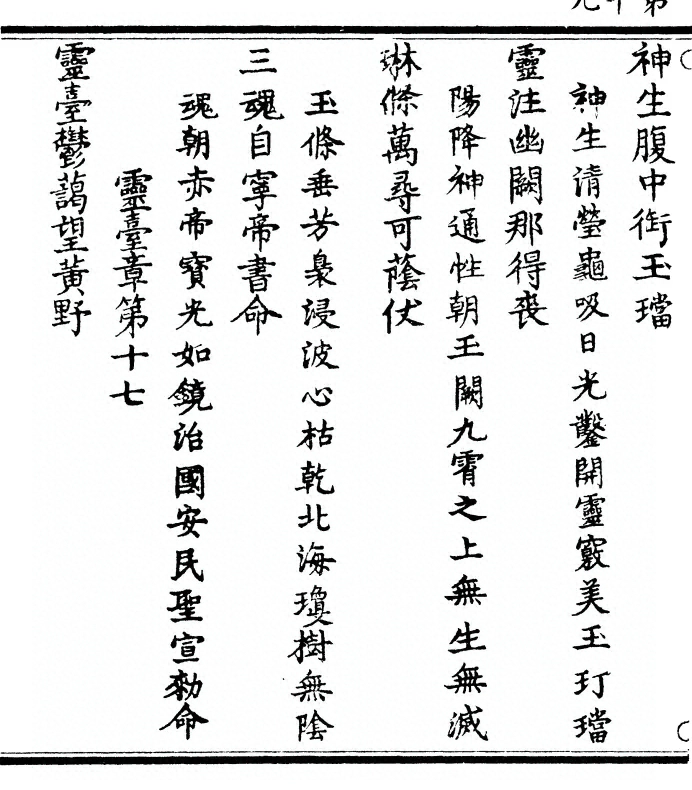 神生腹中銜玉璫
神生清瑩龜吸日光鑿開靈竅美玉玎璫
靈注幽闕那得喪
陽降神通性朝玉闕九霄之上無生無滅
琳條萬尋可蔭仗
玉條垂芳裊浸波心枯乾北海瓊樹無陰
三魂自寧帝書命
魂朝赤帝寶光如鏡治國安民聖宣勑命
靈臺章第十七
靈臺鬱藹望黃野